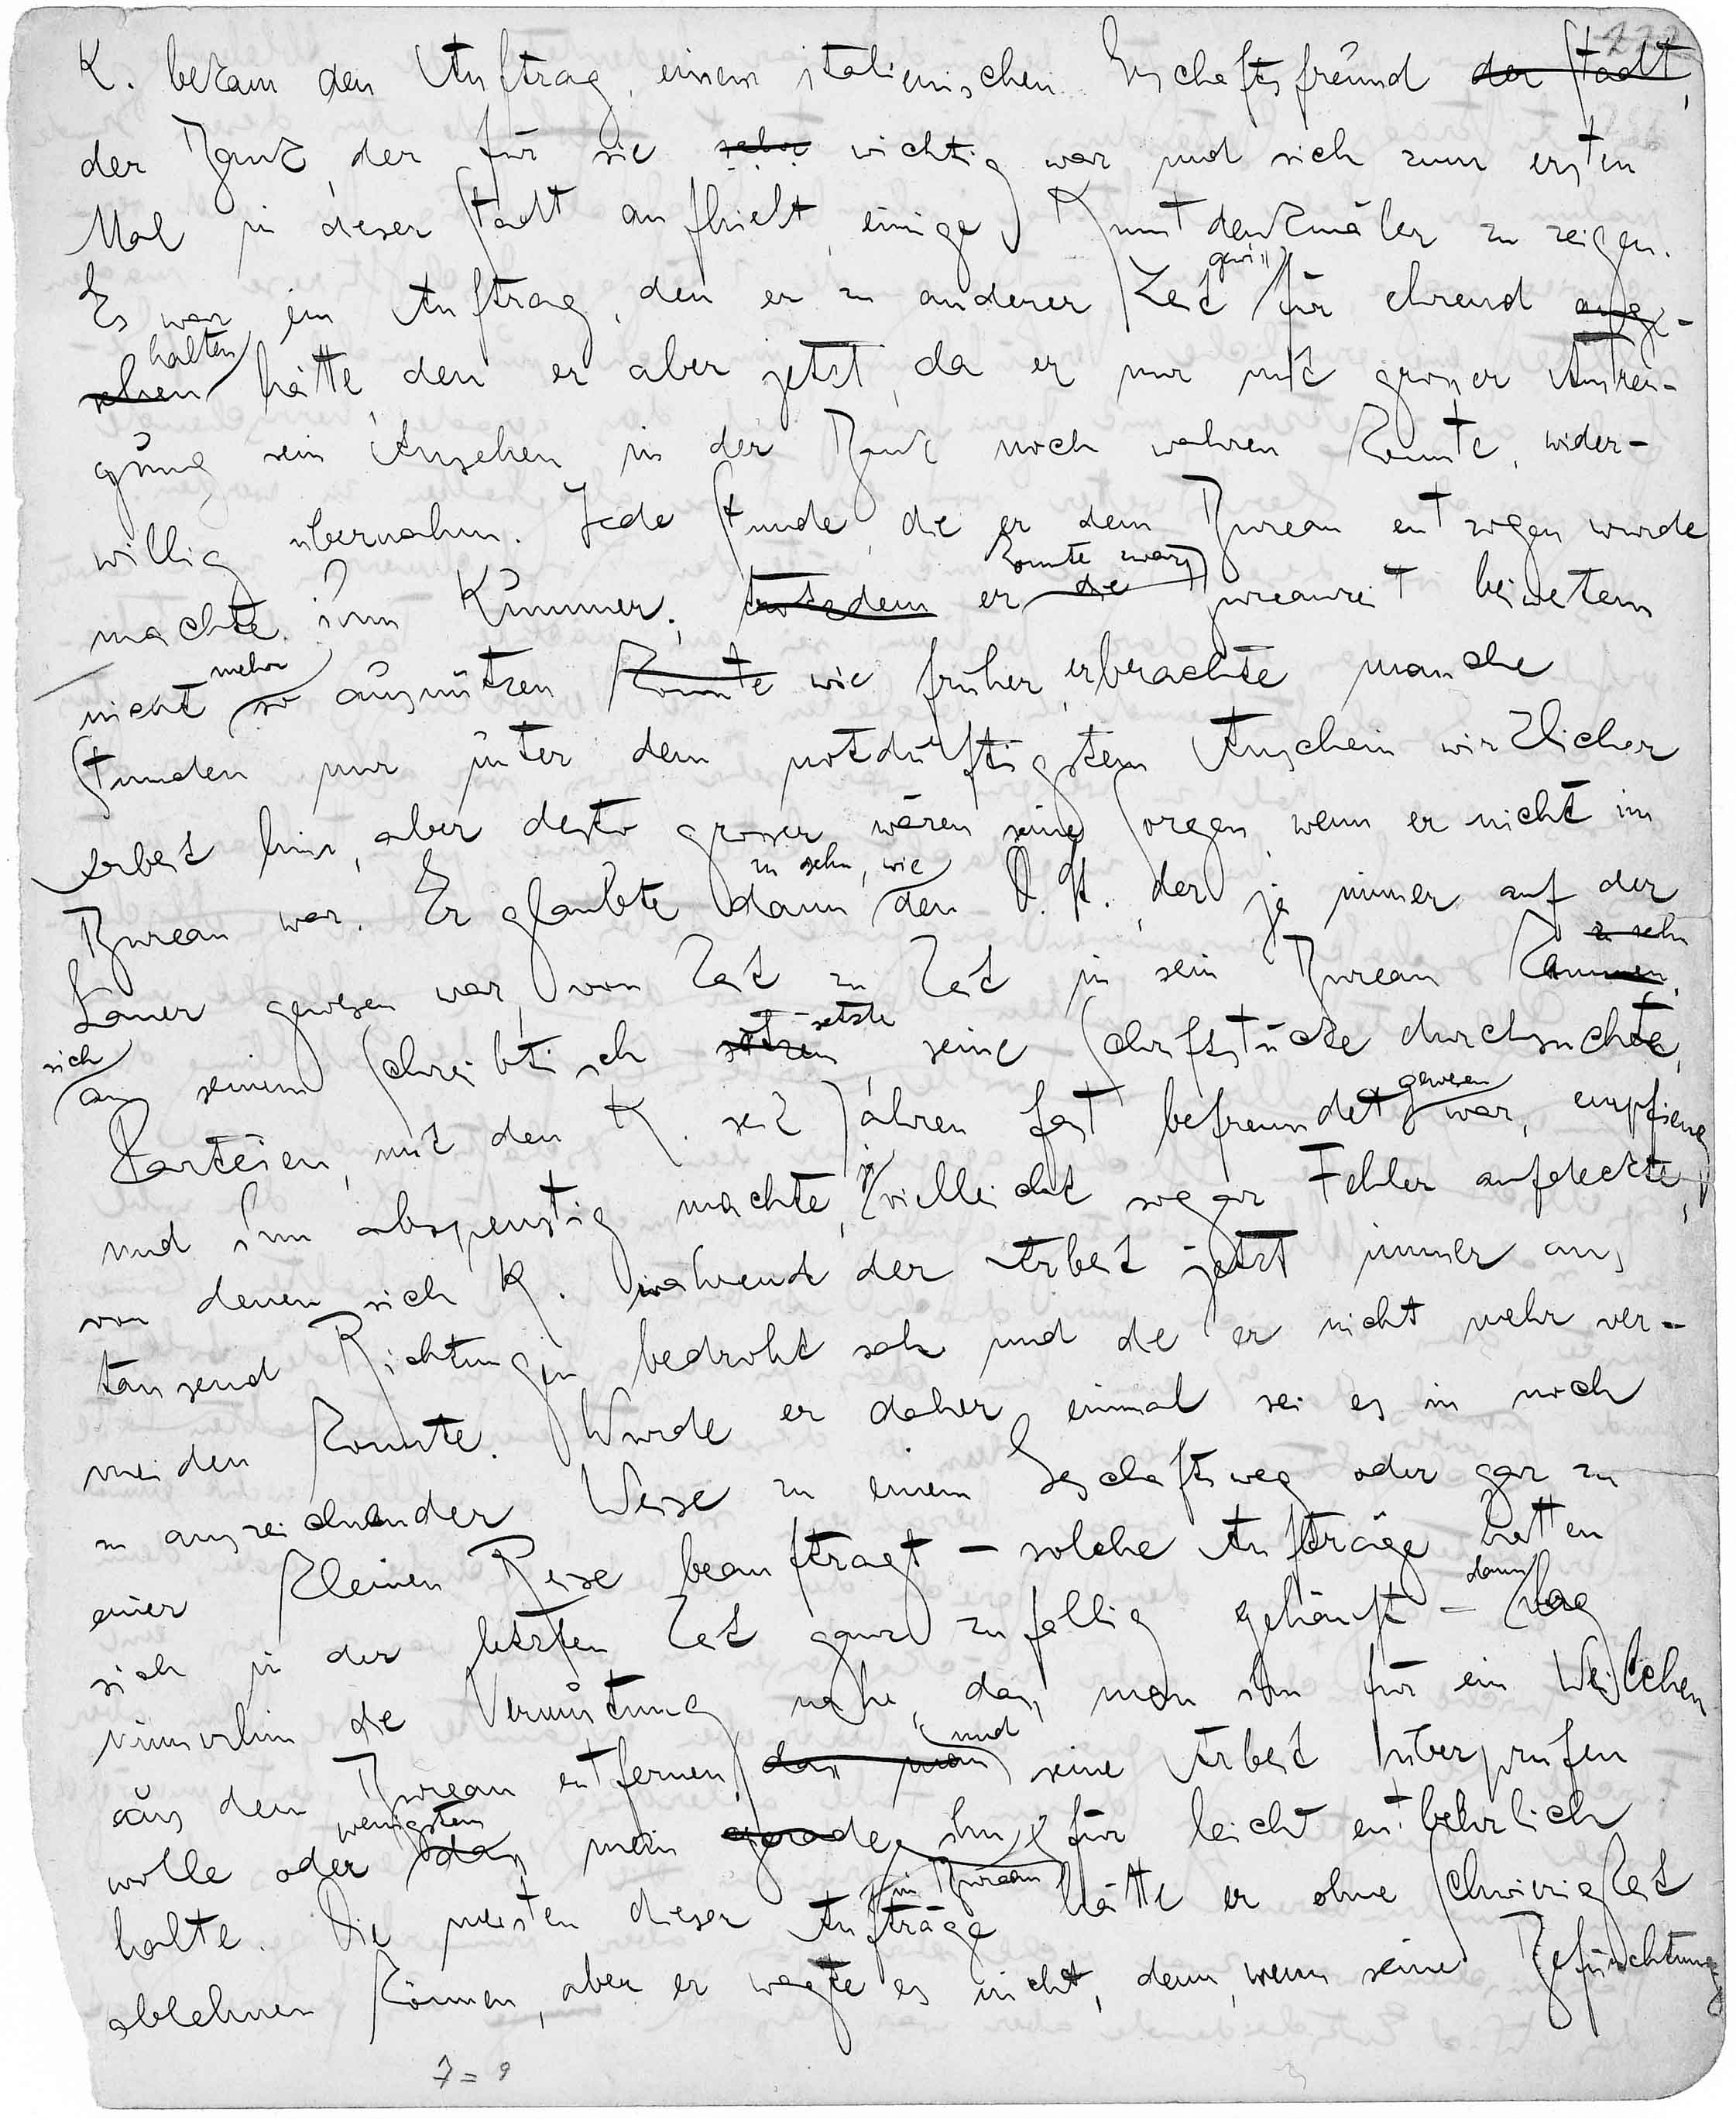 K. bekam den Auftrag, einem italienischen Geschäftsfreund der Stadt,
der Bank, der für sie sehr wichtig war und sich zum ersten
Mal in dieser Stadt aufhielt, einige Kunstdenkmäler zu zeigen.
gewiß
Es war ein Auftrag, den er zu anderer Zeit für ehrend ange-
halten
sehen hätte, den er aber jetzt, da er nur mit grosser Anstren-
gung sein Ansehen in der Bank noch wahren konnte, wider-
willig übernahm. Jede Stunde, die er dem Bureau entzogen wurde
konnte zwar
machte ihm Kummer; trotzdem er die Bureauzeit beiweitem
mehr
nicht so ausnützen konnte wie früher, er brachte manche
Stunden nur unter dem notdürftigsten Anschein wirklicher
Arbeit hin, aber desto grösser waren seine Sorgen, wenn er nicht im
zu sehn, wie
Bureau war. Er glaubte dann den D. St., der ja immer auf der
zu sehn
Lauer gewesen war, von Zeit zu Zeit in sein Bureau kommen,
sich setzte
an seinem Schreibtisch setzen, seine Schriftstücke durchsuchte,
gewesen
Parteien, mit den K. seit Jahren fast befreundet war, empfieng
ja
und ihm abspenstig machte, vielleicht sogar Fehler aufdeckte,
von denen sich K. während der Arbeit jetzt immer aus
tausend Richtungen bedroht sah und die er nicht mehr ver-
meiden konnte. Wurde er daher einmal sei es in noch
so auszeichnender Weise zu einem Geschäftsweg oder gar zu
einer kleinen Reise beauftragt – solche Aufträge hatten
dann
sich in der letzten Zeit ganz zufällig gehäuft – lag
immerhin die Vermutung nahe, dass man ihn für ein Weilchen
und
aus dem Bureau entfernen, dass man seine Arbeit überprüfen
wenigstens
wolle oder dass man gerade ihn für leicht entbehrlich
im Bureau
halte. Die meisten dieser Aufträge hätte er ohne Schwierigkeit
ablehnen können, aber er wagte es nicht, denn, wenn seine Befürchtung
7 = 9